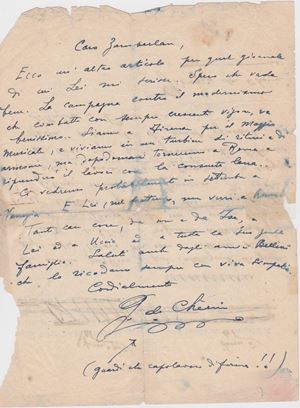 Caro Zanzerlan,
Ecco un' altro articolo per quel giornale
di cui Lei mi scrisse. Spero che vada
bene. La campagna contro il modernismo
che combatte con sempre crescent vigore, va
benissimo. Siamo a Firenze per il Maggio
Musicale, e viviamo in un turbine di ritmi e di
armonie, ma dopodomani torneremo a Roma e
riprenderò il lavoro con la consueta lena.
Ci vedremo probabilmente in settembre a
Venezia E Lei, nel frattempo, non verrà a
Tante care cose, da me e da Isa, a
Lei ed a ed a tutta la Sua gentile
famiglia. Saluti anche dagli amici Bellini
che lo ricordano sempre con viva simpatia.
Cordialmente
G. de Chirico
(guardi che capolavoro di firma!!)